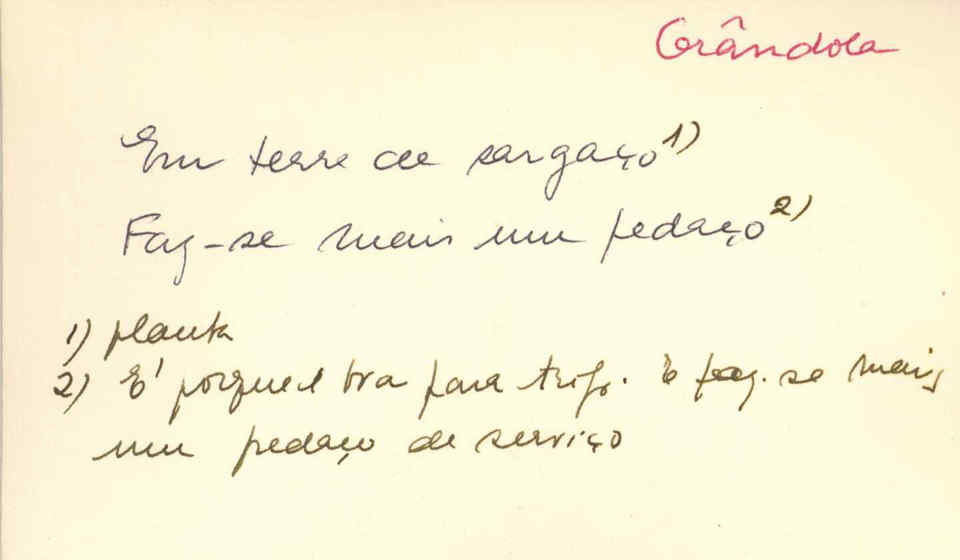 Grândola
Em terra de sargaço 1)
Faz-se mais um pedaço 2)
1) planta
2) É porque é boa para trigo. E faz-se mais
um pedaço de serviço